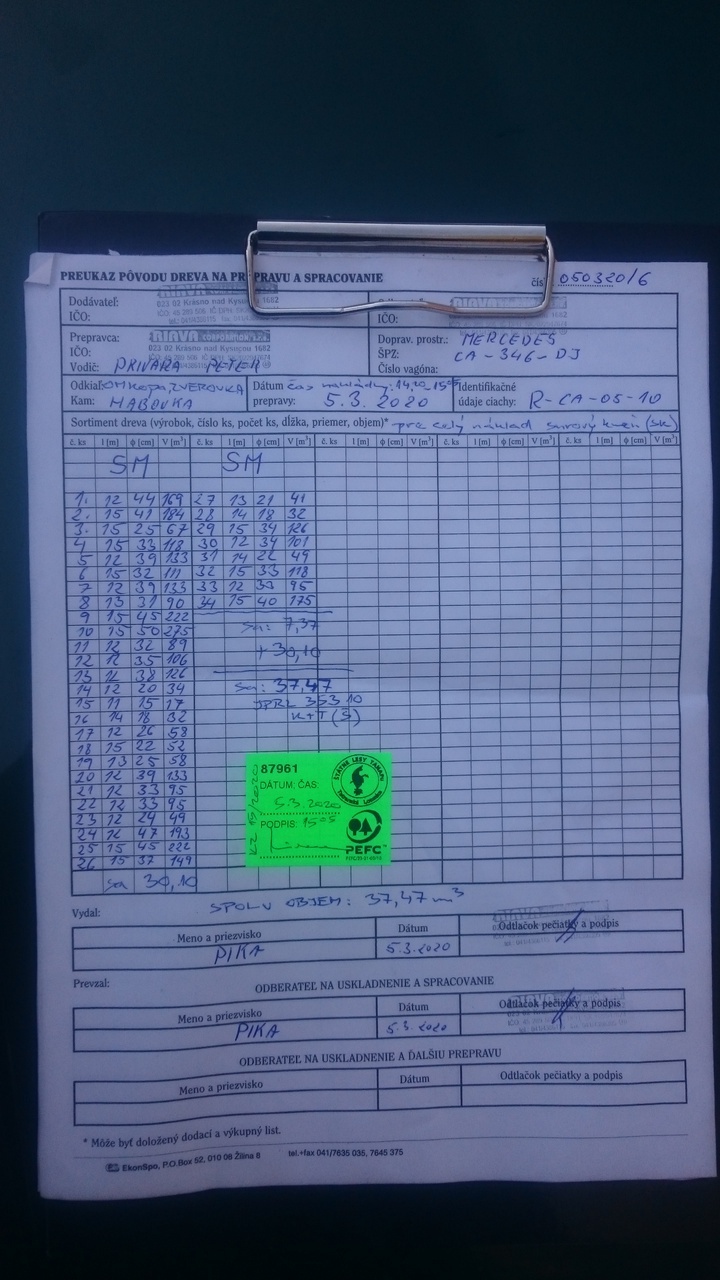 PREUKAZ PÔVODU DREVA NA PREPRAVU A SPRACOVANIE
050320/6
Dodávateľ:
023 02 Krásno nad Kysucou 1682
IČO:
IČO:
Prepravca:
023 02 Krásno nad Kysucou 1682
IČO:
Vodič: PRIVARA PETER
Doprav. prostr.: MERCEDES
ŠPZ: CA-346-DJ
Číslo vagóna:
Odkiaľ: ZVEROVKA
Kam: HABOVKA
Dátum čas nakládky: 14,20-15
prepravy: 5.3.2020
Identifikačné
údaje ciachy: R-CA-05-10
Sortiment dreva (výrobok, číslo ks, počet ks, dĺžka, priemer, objem)* pre celý náklad surový kmeň (SK)
č. ks l [m] ϕ [cm] V [m³] č. ks l [m] ϕ [cm] V [m³] č. ks l [m] ϕ [cm] V [m³] č. ks l [m] ϕ [cm] V [m³] č. ks l [m] ϕ [cm] V [m³]
SM SM
1. 12 44 169 27 13 21 41
2. 15 41 184 28 14 18 32
3. 15 25 67 29 15 34 126
4 15 33 118 30 12 34 101
5 12 39 133 31 14 22 49
6 15 32 111 32 15 33 118
7 12 39 133 33 12 33 95
8 13 31 90 34 15 40 175
9 15 45 222
10 15 50 275
Sa: 7,37
11 12 32 89
+30,10
12 12 35 106
13 12 38 126
14 12 20 34
Sa: 37,47
15 11 15 17
JPRL 353 10
16 14 18 32
K+T (Š)
17 12 26 58
18 15 22 52
19 13 25 58
20 12 39 133
21 12 33 95
22 12 33 95
23 12 24 49
24 12 47 193
25 15 45 222
26 15 37 149
Sa 30,10
87961
DÁTUM, ČAS:
5.3.2020
PODPIS: 15
ŠTÁTNE LESY TANAPU
Tatranská Lomnica
PEFC
SPOLU OBJEM: 37,47 m³
Vydal:
Meno a priezvisko Dátum Odtlačok pečiatky a podpis
PIKA 5.3.2020
Prevzal:
ODBERATEĽ NA USKLADNENIE A SPRACOVANIE
Meno a priezvisko Dátum Odtlačok pečiatky a podpis
PIKA 5.3.2020
ODBERATEĽ NA USKLADNENIE A ĎALŠIU PREPRAVU
Meno a priezvisko Dátum Odtlačok pečiatky a podpis
* Môže byť doložený dodací a výkupný list.
EkonSpo, P.O.Box 52, 010 08 Žilina 8 tel.+fax 041/7635 035, 7645 375